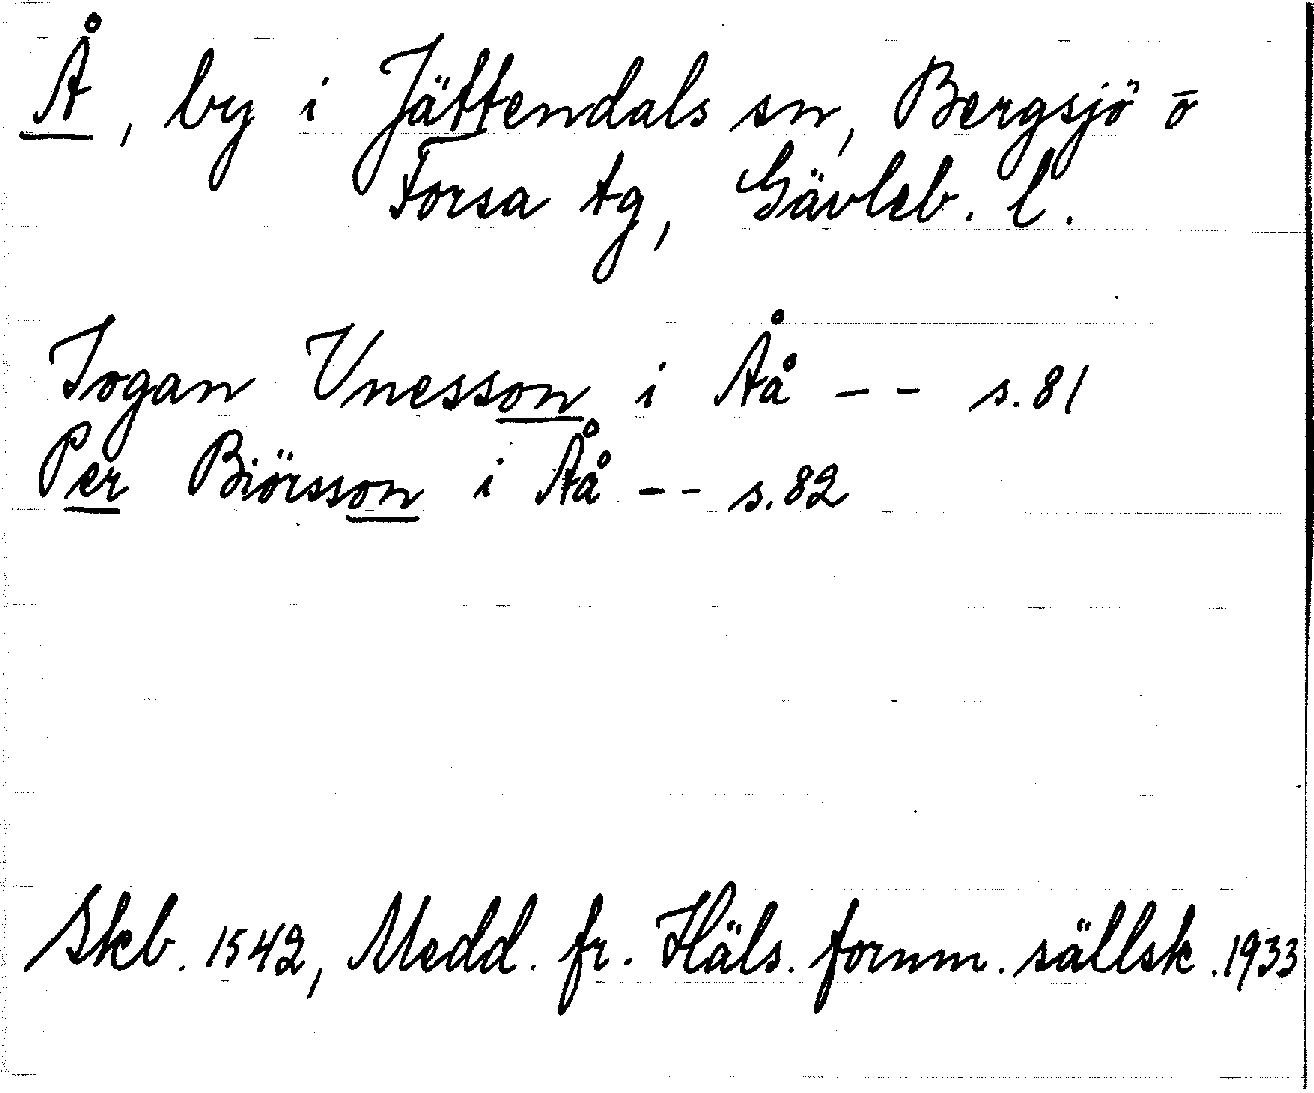 Å, by i Jättendals sn, Bergsjö o
Forsa tg, Gävleb. l.
Jogan Vnesson i Åå -- s.81
Per Biörsson i Åå -- s.82
Skb. 1542, Medd. fr. Häls. fornm. sällsk. 1933